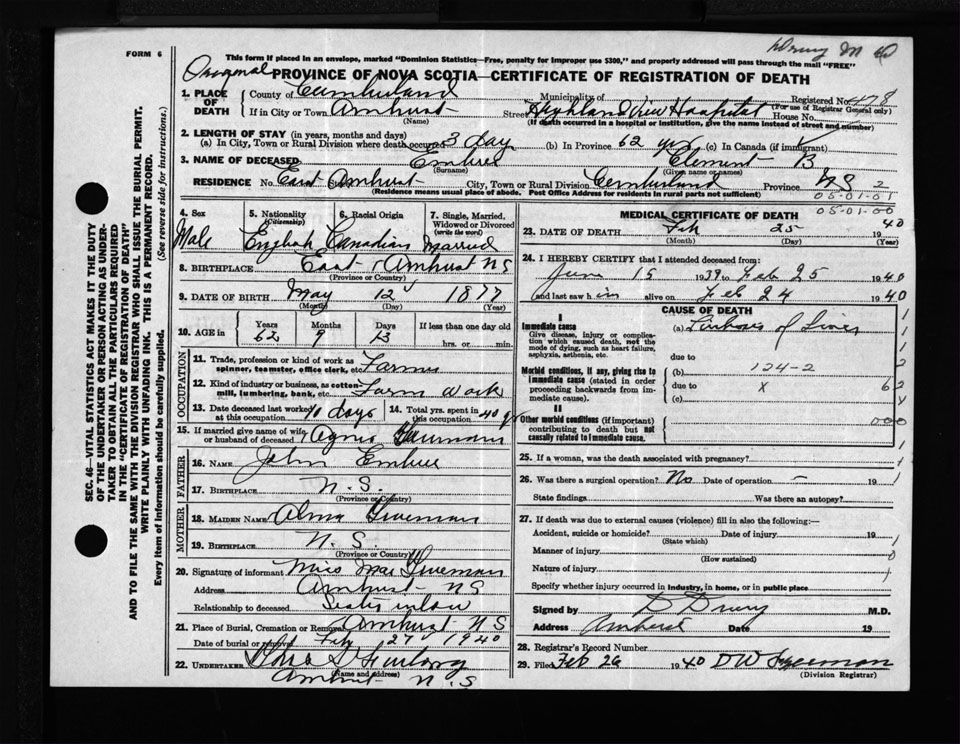 Drury M D
FORM 6
This form if placed in an envelope, marked "Dominion Statistics—Free, penalty for improper use $300," and properly addressed will pass through the mail "FREE"
Original PROVINCE OF NOVA SCOTIA—CERTIFICATE OF REGISTRATION OF DEATH
1. PLACE OF DEATH County of Cumberland Municipality of Registered No. 478
(For use of Registrar General only)
If in City or Town Amherst Street Highland View Hospital House No.
(Name) (If death occurred in a hospital or institution, give the name instead of street and number)
2. LENGTH OF STAY (in years, months and days)
(a) In City, Town or Rural Division where death occurred 3 days (b) In Province 62 yrs (c) In Canada (if immigrant)
3. NAME OF DECEASED Embree Clement B
(Surname) (Given name or names)
RESIDENCE No. East Amherst City, Town or Rural Division Cumberland Province NS 2
(Residence means usual place of abode. Post Office Address for Residents in rural parts not sufficient) 05-01-01
05-01-00
4. Sex 5. Nationality (Citizenship) 6. Racial Origin 7. Single, Married, Widowed or Divorced (write the word)
Male English Canadian Married
8. BIRTHPLACE East Amherst NS
(Province or Country)
9. DATE OF BIRTH May 12 1877
(Month) (Day) (Year)
10. AGE in Years Months Days If less than one day old
62 9 13 hrs. or min.
OCCUPATION
11. Trade, profession or kind of work as spinner, teamster, office clerk, etc. Farmer
12. Kind of industry or business, as cotton-mill, lumbering, bank, etc. Farm work
13. Date deceased last worked at this occupation 10 days 14. Total yrs. spent in this occupation 40 yr
15. If married give name of wife or husband of deceased Agnes
FATHER
16. NAME John Embree
17. BIRTHPLACE N.S.
(Province or Country)
MOTHER
18. MAIDEN NAME Alma
19. BIRTHPLACE N.S.
(Province or Country)
20. Signature of informant Miss Mae
Address Amherst NS
Relationship to deceased Sister inlaw
21. Place of Burial, Cremation or Removal Amherst N S
Date of burial or removal Feb 27 1940
22. UNDERTAKER
(Name and address)
Amherst N.S
MEDICAL CERTIFICATE OF DEATH
23. DATE OF DEATH Feb 25 1940
(Month) (Day) (Year)
24. I HEREBY CERTIFY that I attended deceased from:
June 15 1939 to Feb 25 1940
and last saw him alive on Feb 24 1940
CAUSE OF DEATH
I
Immediate cause (a) Cirrhosis of Liver
Give disease, injury or complication which caused death, not the mode of dying, such as heart failure, asphyxia, asthenia, etc.
due to
Morbid conditions, if any, giving rise to immediate cause (stated in order proceeding backwards from immediate cause). (b) 124-2
due to X 62
(c)
II
Other morbid conditions (if important) contributing to death but not causally related to immediate cause. 000
25. If a woman, was the death associated with pregnancy?
26. Was there a surgical operation? No Date of operation – 19
State findings Was there an autopsy?
27. If death was due to external causes (violence) fill in also the following:—
Accident, suicide or homicide? Date of injury 19
(State which)
Manner of injury
(How sustained)
Nature of injury
Specify whether injury occurred in industry, in home, or in public place
Signed by D Drury M.D.
Address Amherst Date 19
28. Registrar's Record Number
29. Filed Feb 26 1940 DW
(Division Registrar)
SEC. 46—VITAL STATISTICS ACT MAKES IT THE DUTY
OF THE UNDERTAKER OR PERSON ACTING AS UNDER-
TAKER TO OBTAIN ALL THE PARTICULARS REQUIRED
IN THE "CERTIFICATE OF REGISTRATION OF DEATH"
AND TO FILE THE SAME WITH THE DIVISION REGISTRAR WHO SHALL ISSUE THE BURIAL PERMIT.
WRITE PLAINLY WITH UNFADING INK. THIS IS A PERMANENT RECORD.
Every item of information should be carefully supplied. (See reverse side for instructions.)